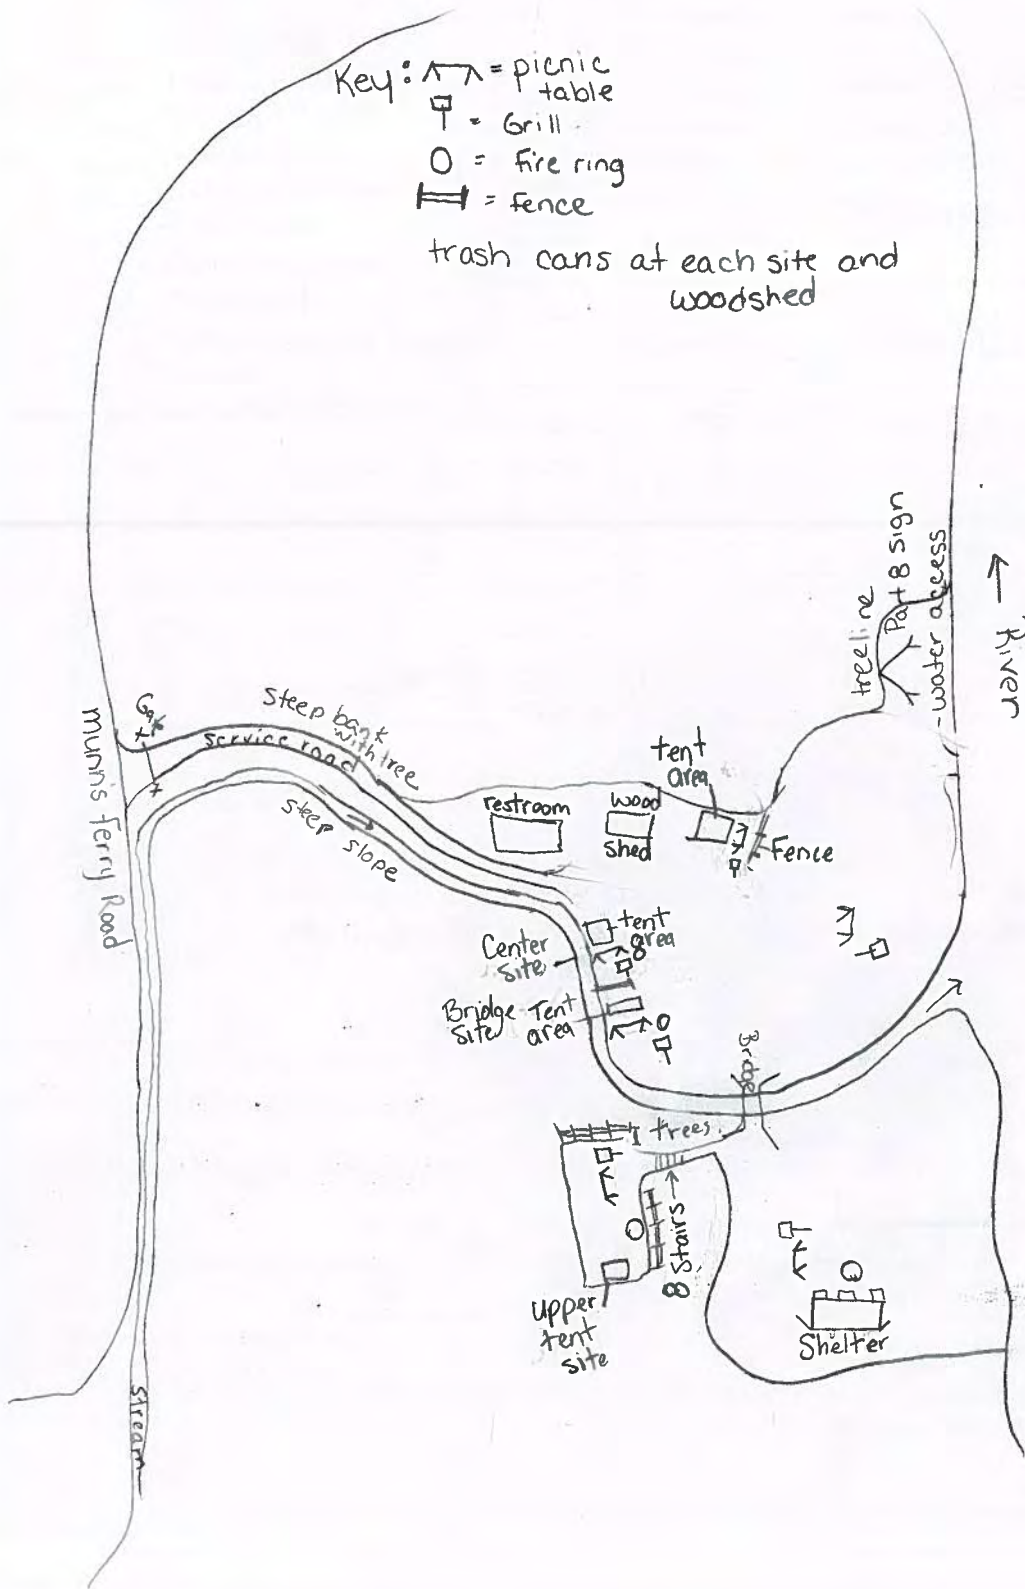 Key: = picnic
table
= Grill
= fire ring
= fence
trash cans at each site and
woodshed
treeline
Part 8 sign
water access
River
Gate
Munn's Ferry Road
Steep bank
with tree
Service road
steep slope
restroom
wood
shed
tent
area
Fence
tent
area
Center
site
Bridge
site
Tent
area
Bridge
trees
8 Stairs
upper
tent
site
Shelter
stream